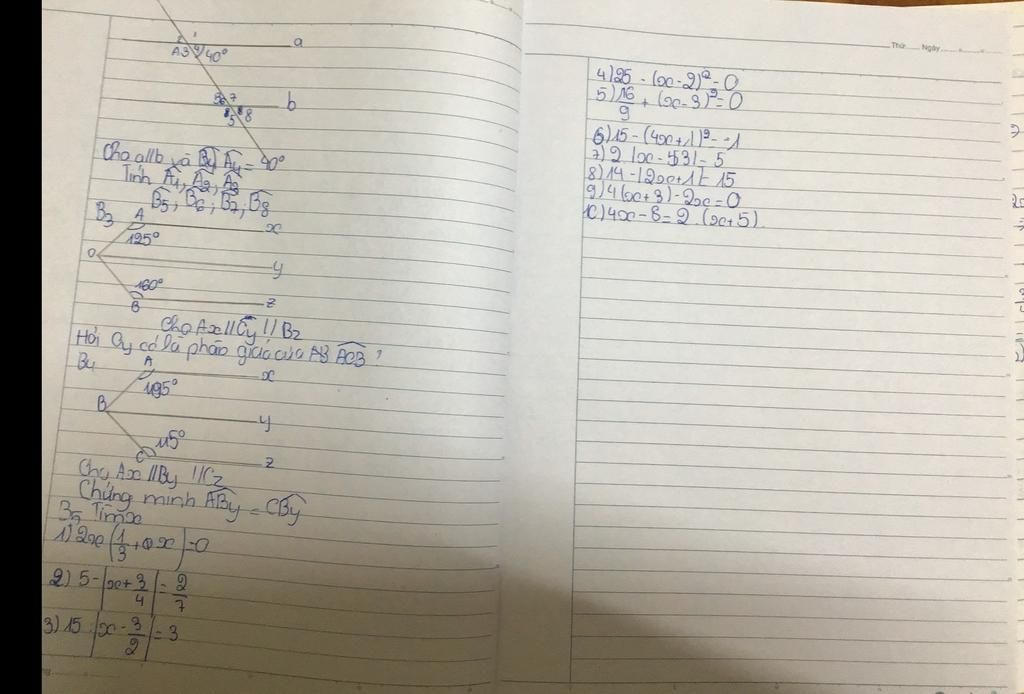 2 1 a
A3 4 40°
36 7 b
5 8
Cho a//b và B4 A4 = 40°
Tính A1, A2, A3
B5, B6, B7, B8
B3 A x
125°
O y
160°
B z
Cho Ax // Oy // Bz
Hỏi Oy có là phân giác của AB AOB ?
B4 A x
B y
115°
C z
Cho Ax // By // Cz
Chứng minh ABy = CBy
B5 Tìm x
1) 2x (1/3 + x) = 0
2) 5 - |x + 3/4| = 2/7
3) 15 : |x - 3/2| = 3
Thứ Ngày
4) 25 - (x - 2)² = 0
5) 16/9 + (x - 3)² = 0
6) 15 - (4x + 1)² = -1
7) 2 |x - 3| = 5
8) 14 - |2x + 1| = 15
9) 4(x + 3) - 2x = 0
10) 4x - 8 = 2 . (x + 5)